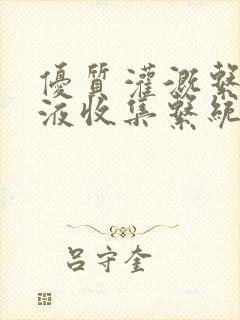 優質灌溉繫
液收集繫統
呂守奎